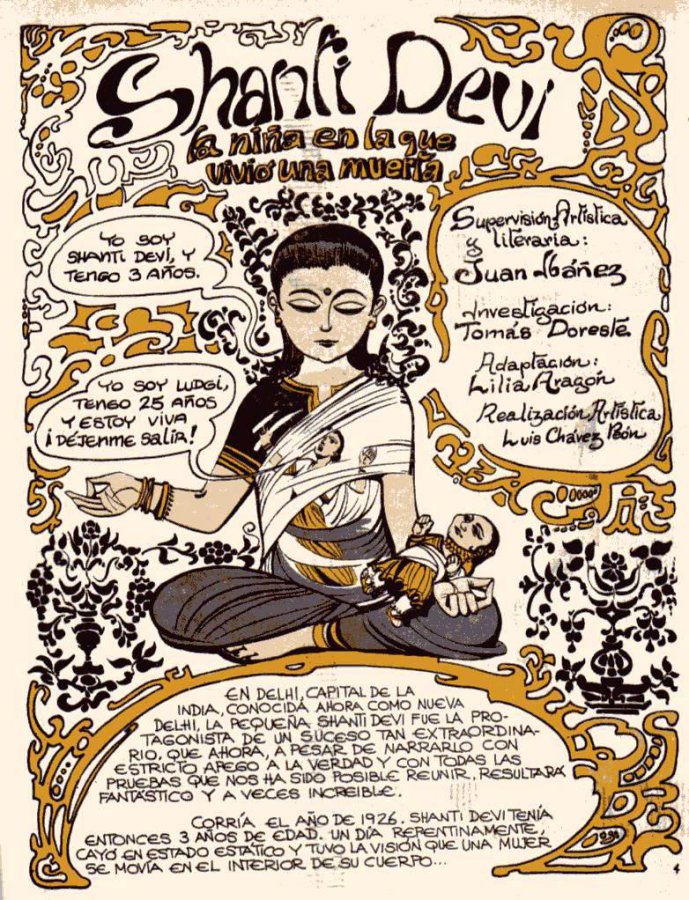 Shanti Devi
la niña en la que
vivio una muerta
YO SOY
SHANTI DEVÍ, Y
TENGO 3 AÑOS.
Supervisión Artística
y literaria:
Juan Ibáñez
Investigación:
Tomás Doreste
Adaptación:
Lilia Aragón
Realización Artística
Luis Chávez Peón
YO SOY LUDGI,
TENGO 25 AÑOS
Y ESTOY VIVA
¡DÉJENME SALIR!
EN DELHI, CAPITAL DE LA
INDIA, CONOCIDA AHORA COMO NUEVA
DELHI, LA PEQUEÑA SHANTI DEVI FUE LA PRO-
TAGONISTA DE UN SUCESO TAN EXTRAORDINA-
RIO, QUE AHORA, A PESAR DE NARRARLO CON
ESTRICTO APEGO A LA VERDAD Y CON TODAS LAS
PRUEBAS QUE NOS HA SIDO POSIBLE REUNIR, RESULTARÁ
FANTÁSTICO Y A VECES INCREIBLE.
CORRÍA EL AÑO DE 1926. SHANTI DEVI TENÍA
ENTONCES 3 AÑOS DE EDAD. UN DÍA REPENTINAMENTE,
CAYÓ EN ESTADO ESTÁTICO Y TUVO LA VISIÓN QUE UNA MUJER
SE MOVÍA EN EL INTERIOR DE SU CUERPO...
4